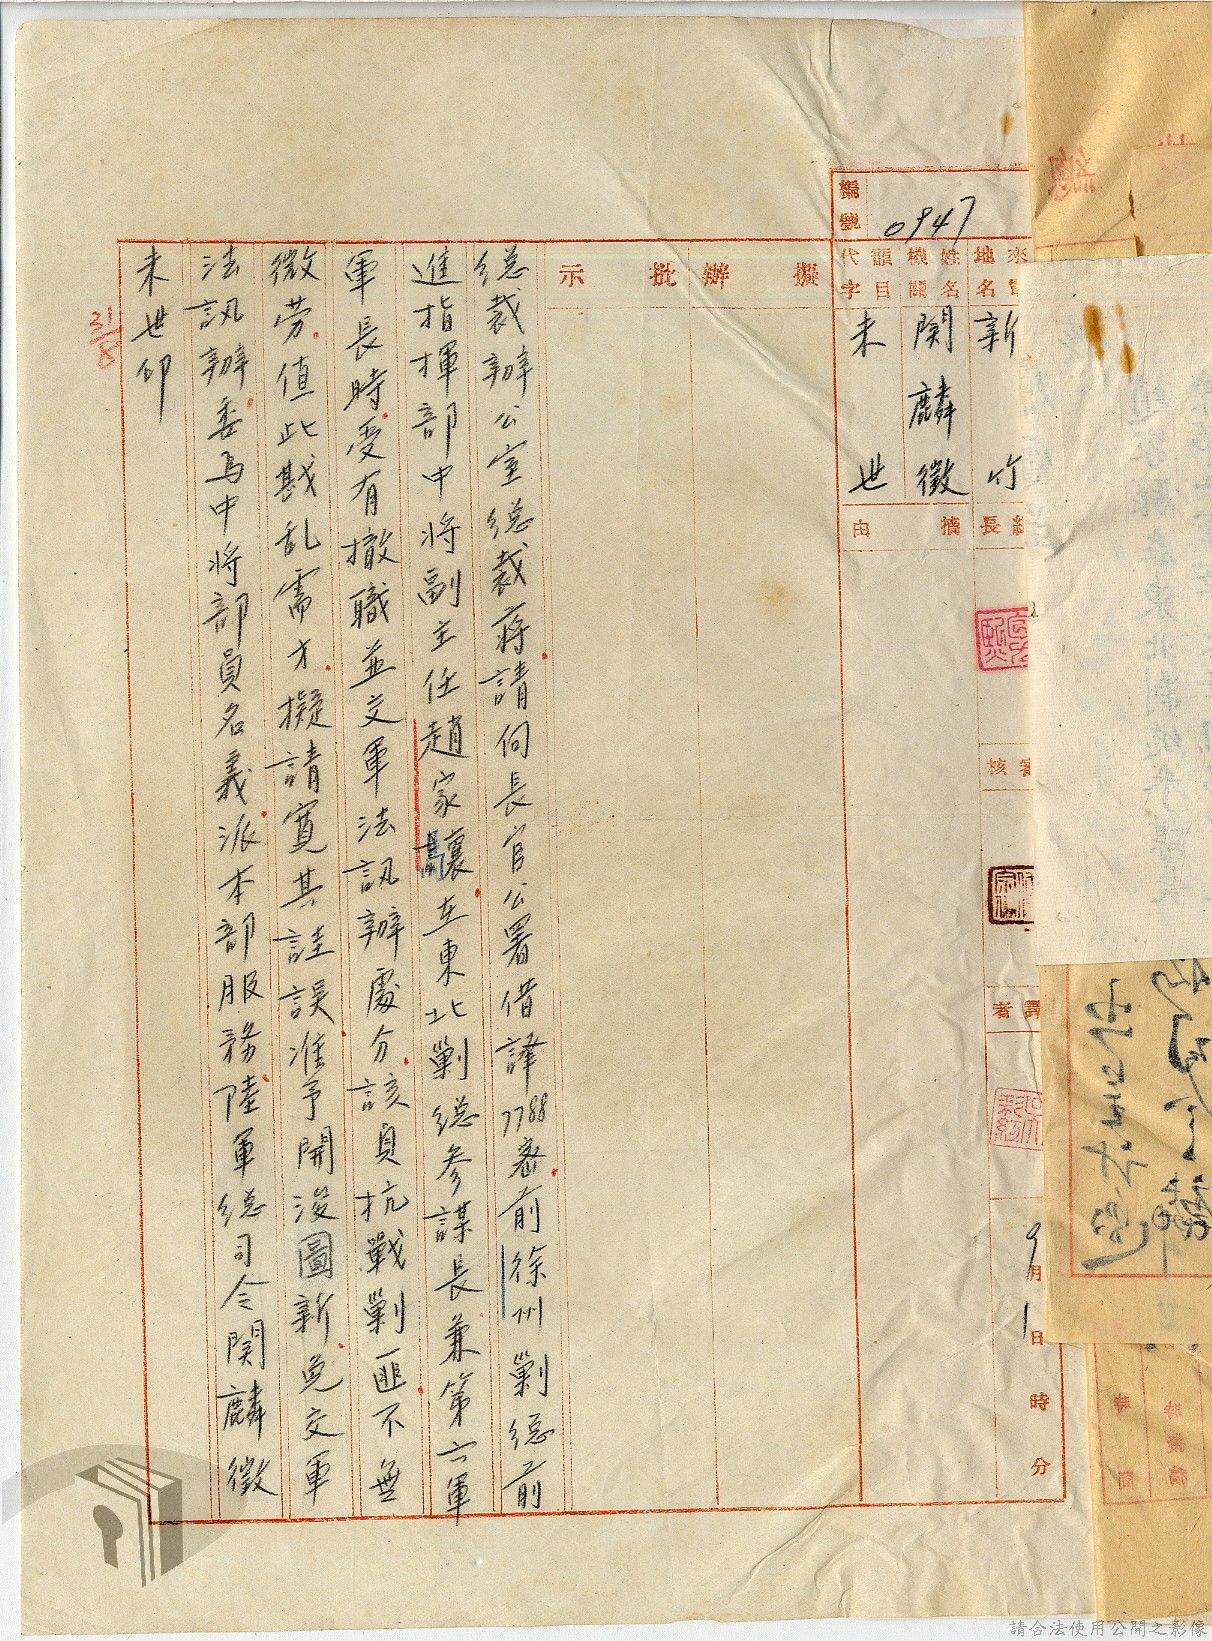 編號
0947
來電地名
新竹
姓名機關
関麟徵
韻目代字
未世
組長
摘由
審核
譯者
9月1日時分
擬辦
批示
總裁辦公室總裁蔣請何長官公署借譯7788密前徐州剿總前
進指揮部中將副主任趙家驤在東北剿總參謀長兼第六軍
軍長時受有撤職並交軍法訊辦處分該員抗戰剿匪不無
微劳值此戡乱需才擬請寬其詿誤准予開浚圖新免交軍
法訊辦委為中將部員名義派本部服務陸軍總司令関麟徵
未世卯
31/8
請合法使用公開之影像